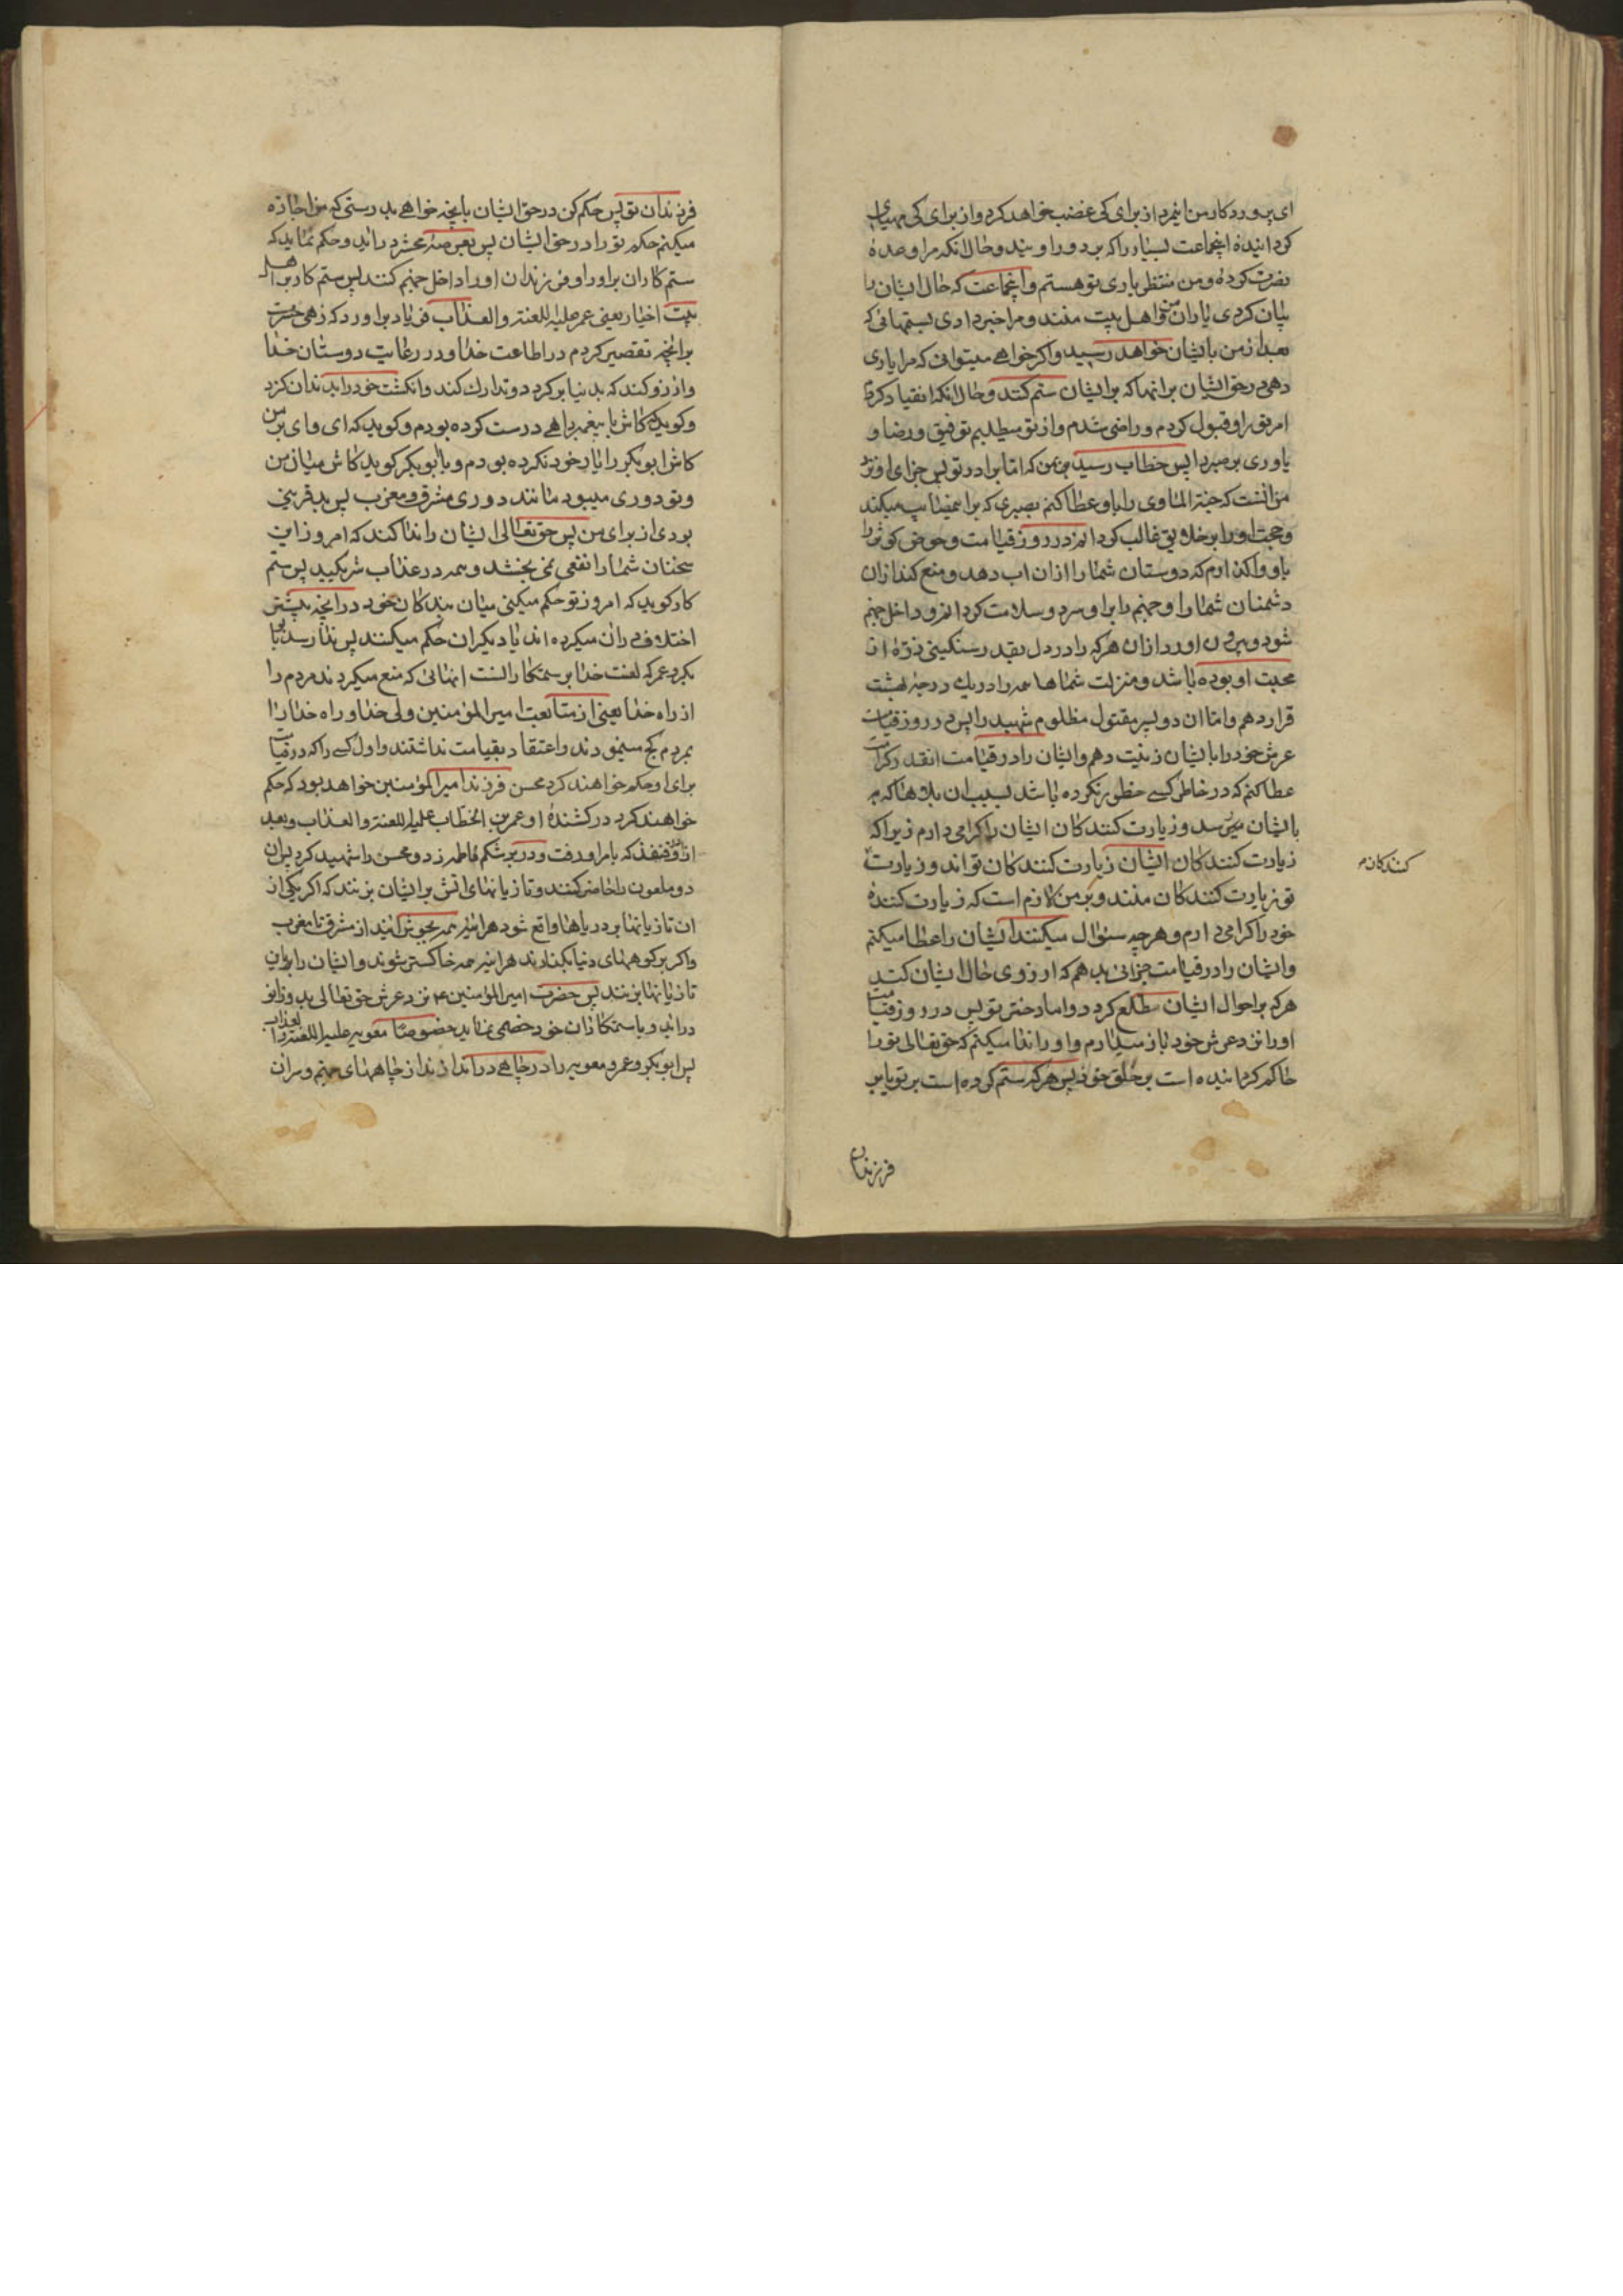 ای پروردکار من ایزد از برای کی غضب خواهد کرد و از برای کی مهیای
کردانیدهٔ اینجماعت بسیار را که بر دور او بیند و حال آنکه مرا وعدهٔ
نصرت کردهٔ و من منتظر یاری تو هستم و اینجماعت که حال ایشان را
بیان کردی یاران من و اهل بیت منند و مرا خبر دادی بستمهائی که
بعد از من بایشان خواهد رسید و اکر خواهے میتوانی که مرا یاری
دهی در حق ایشان بر انها که بر ایشان ستم کنند و حال آنکه انقیاد کردم
امر تو را و قبول کردم و راضی شدم و از تو میطلبم توفیق و رضا و
یاوری بر صبر را پس خطاب رسید بمن که اما برادر تو پس جزای او نزد
من آنست که جنة الماوی را باو عطا کنم بصبری که بر این مصایب میکند
و حجت او را بر خلایق غالب کردانم در روز قیامت و حوض کوثر را
باو واکذارم که دوستان شما را از ان اب دهد و منع کند از ان
دشمنان شما را و جهنم را بر او سرد و سلامت کردانم و داخل جهنم
شود و بیرون اورد از ان هر که را در دل بقدر سنکینی ذرهٔ از
محبت او بوده باشد و منزلت شماها همه را در یک درجهٔ بهشت
قرار دهم و اما ان دو پسر مقتول مظلوم شهید را پس در روز قیامت
عرش خود را بایشان زینت دهم و ایشان را در قیامت انقدر کرامت
عطا کنم که در خاطر کسے خطور نکرده باشد بسبب ان بلاها که
بایشان میرسد و زیارت کنندکان ایشان را کرامی دارم زیرا که
زیارت کنندکان ایشان زیارت کنندکان تواند و زیارت
کنندکان
تو زیارت کنندکان منند و بر من لازم است که زیارت کنندهٔ
خود را کرامی دارم و هر چه سئوال میکنند ایشان را عطا میکنم
و ایشان را در قیامت جزائی بدهم که ارزوی حال ایشان کند
هر که بر احوال ایشان مطلع کردد و اما دختر تو پس در روز قیامت
او را نزد عرش خود باز میدارم و او را ندا میکنم که حق تعالی تو را
حاکم کردانیده است بر خلق خود پس هر که ستم کرده است بر تو یا بر
فرزندان
فرزندان تو پس حکم کن در حق ایشان بانچه خواهے بدرستی که من اجازه
میکنم حکم تو را در حق ایشان پس بعرصهٔ محشر در اید و حکم نماید که
ستم کاران بر او را و فرزندان او را داخل جهنم کنند پس ستم کار بر اهل
بیت اخیار یعنی عمر علیه اللعنة و العذاب فریاد بر اورد که زهی حسرت
بر انچه تقصیر کردم در اطاعت خدا و در رعایت دوستان خدا
و ارزو کند که بدنیا بر کردد و تدارک کند و انکشت خود را بدندان کزد
و کوید که کاش با پیغمبر راهے درست کرده بودم و کوید که ای وای بر من
کاش ابو بکر را یار خود نکرده بودم و با ابو بکر کوید کاش میان من
و تو دوری میبود مانند دوری مشرق و مغرب پس بد قرینی
بودی از برای من پس حق تعالی ایشان را ندا کند که امروز این
سخنان شما را نفعی نمی بخشد و همه در عذاب شریکید پس ستم
کار کوید که امروز تو حکم میکنی میان بندکان خود در انچه پیشتر
اختلاف در ان میکرده اند یا دیکران حکم میکنند پس ندا رسد بابو
بکر و عمر که لعنت خدا بر ستمکارانست انهائی که منع میکردند مردم را
از راه خدا یعنی از متابعت امیر المؤمنین ولی خدا و راه خدا را
بمردم کج مینمودند و اعتقاد بقیامت نداشتند و اول کسے را که در قیامت
برای او حکم خواهند کرد محسن فرزند امیر المؤمنین خواهد بود که حکم
خواهند کرد در کشندهٔ او عمر بن الخطاب علیه اللعنة و العذاب و بعد
از او قنفذ که بامر او رفت و در بر شکم فاطمه زد و محسن را شهید کرد پس ان
دو ملعون را حاضر کنند و تازیانهای اتش بر ایشان بزنند که اکر یکی از
ان تازیانها بر دریاها واقع شود هر اینه همه بجوش ایند از مشرق تا مغرب
و اکر بر کوههای دنیا بکذارند هر اینه همه خاکستر شوند و ایشان را بر ان
تازیانها بزنند پس حضرت امیر المؤمنین ع نزد عرش حق تعالی بدو زانو
در اید و با ستمکاران خود خصمی نماید خصوصا معویه علیه اللعنة و العذاب
پس ابو بکر و عمر و معویه را در چاهے در اندازند از چاههای جهنم و سر ان